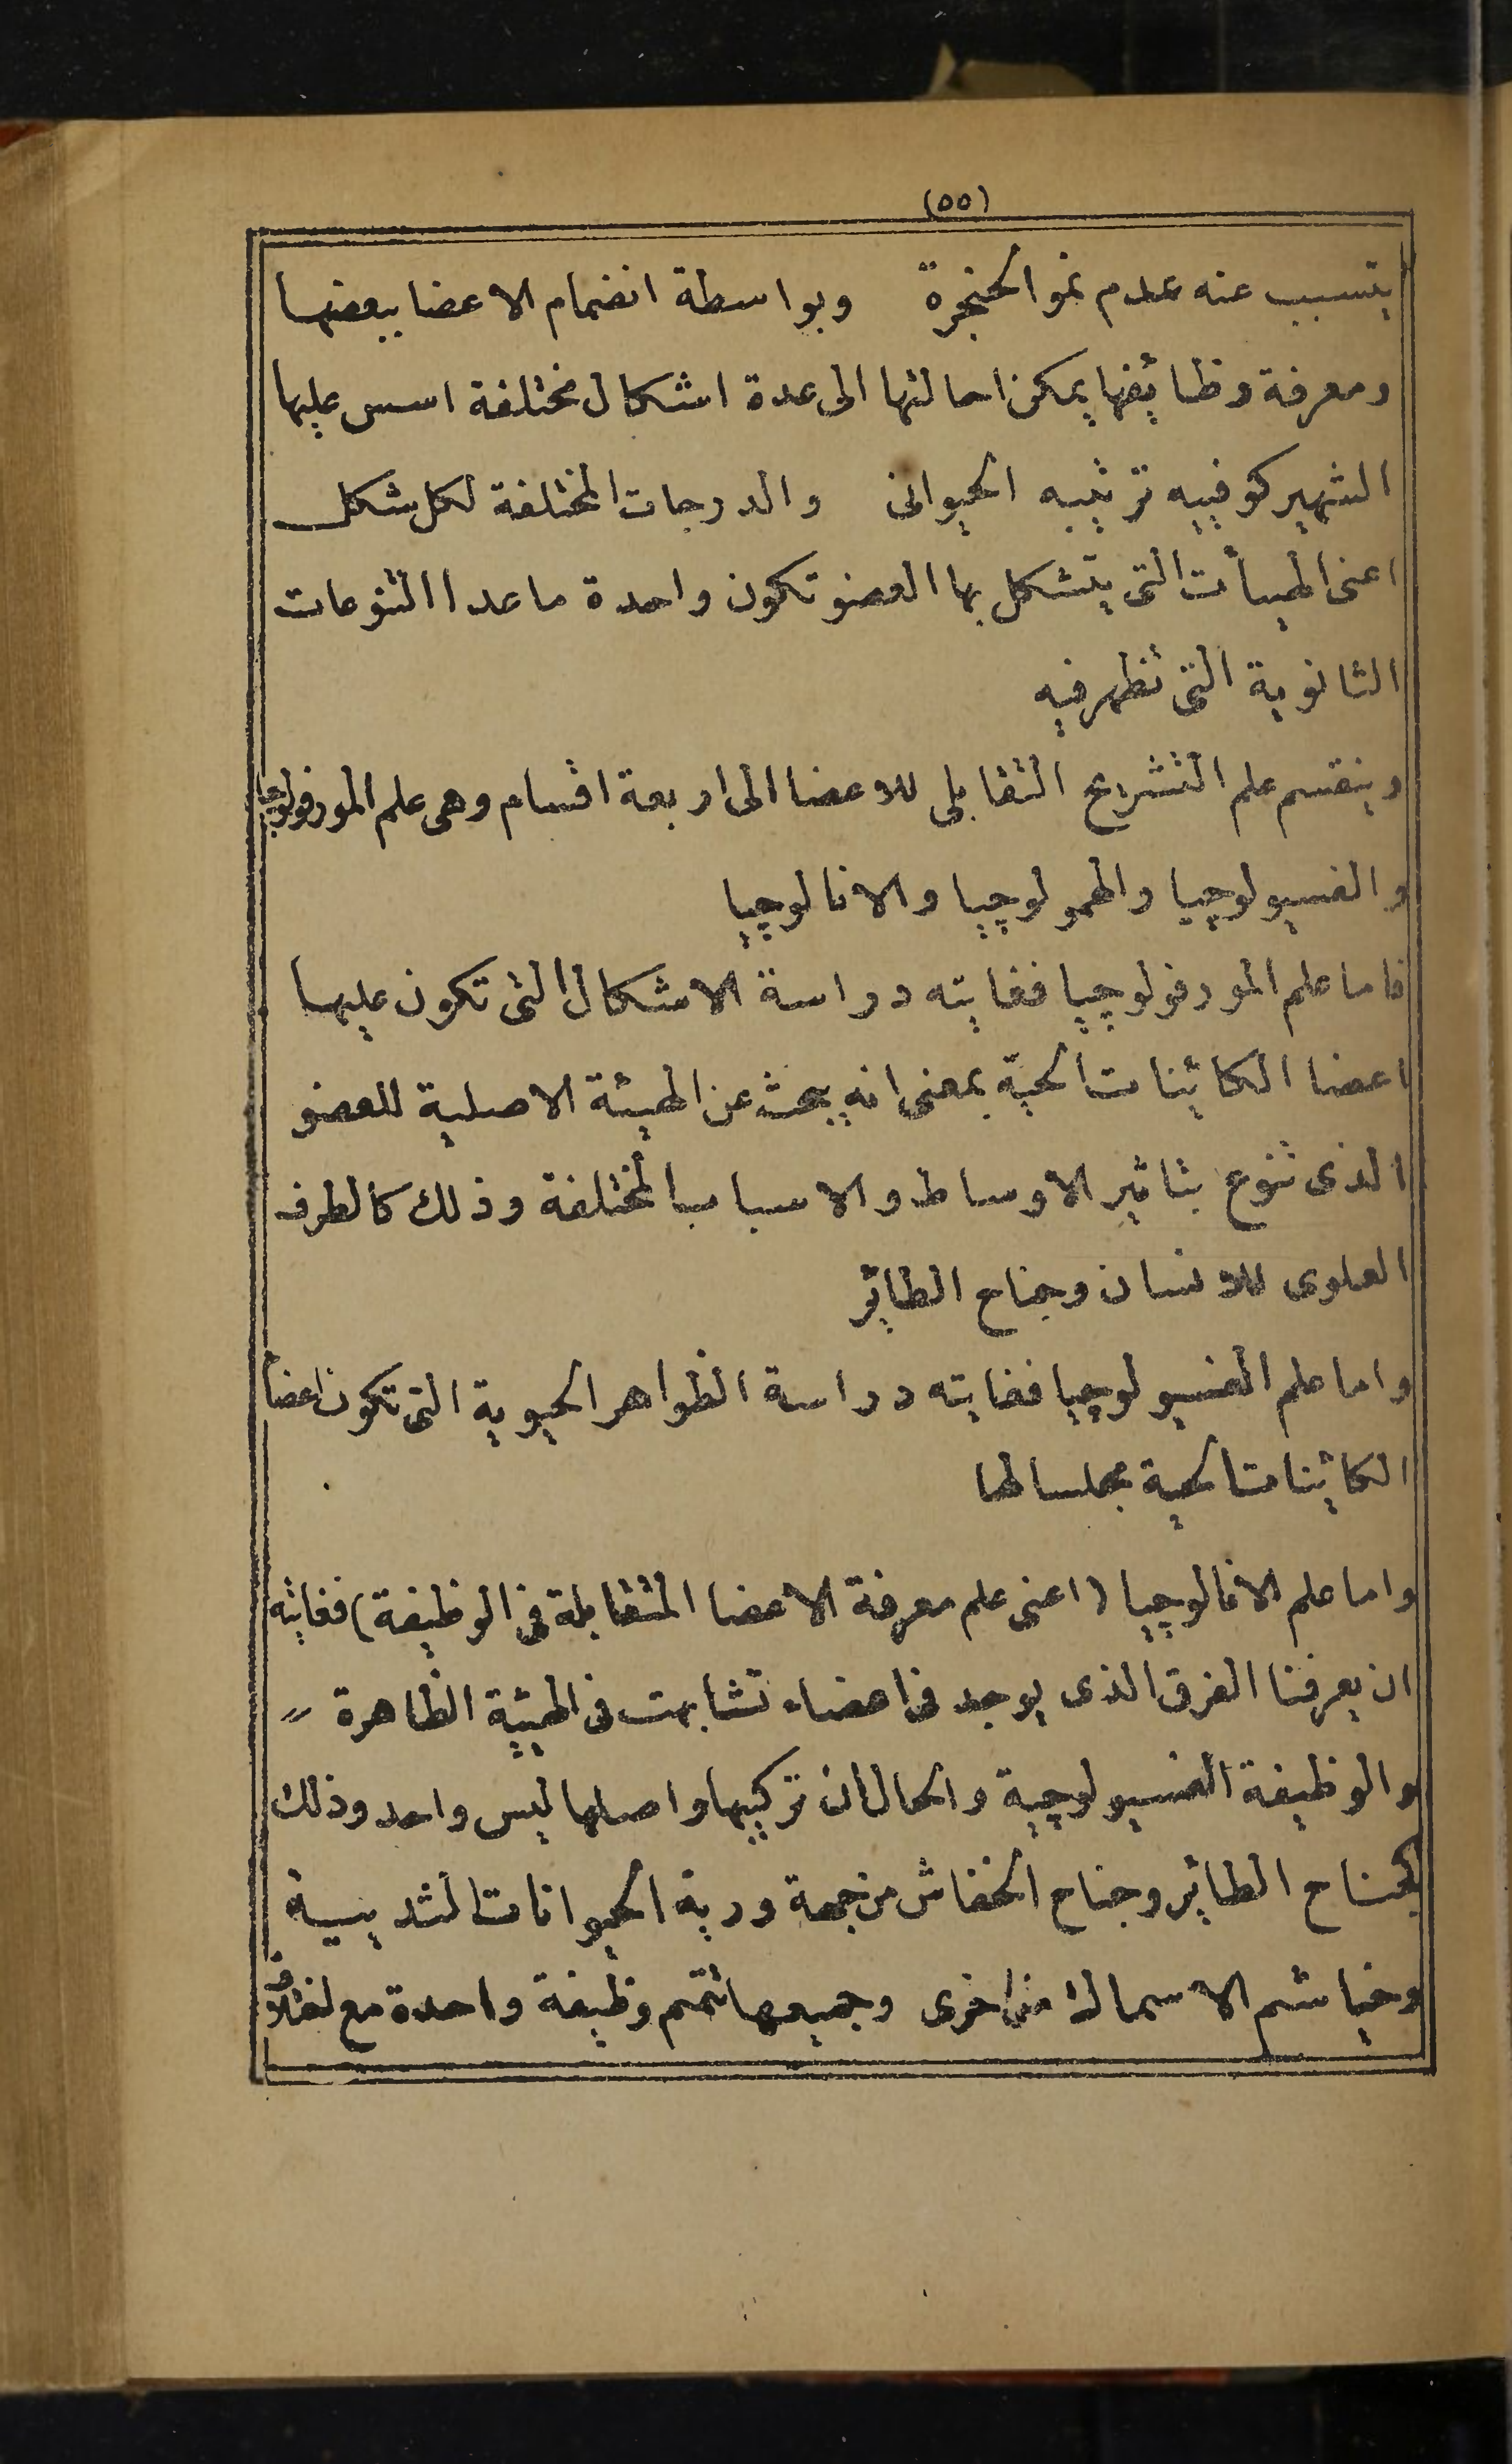 (٥٥)
يتسبب عنه عدم نمو الحنجرة وبواسطة انضمام الاعضا ببعضها
ومعرفة وظائفها يمكن احالتها الى عدة اشكال مختلفة اسس عليها
الشهير كوفييه ترتيبه الحيوانى والدرجات المختلفة لكل شكل
اعنى الهيأت التى يتشكل بها العضو تكون واحدة ماعدا التنوعات
الثانوية التى تظهر فيه
وينقسم علم التشريح التقابلى للاعضا الى اربعة اقسام وهى علم المورفولوجيا
والفسيولوجيا والهمولوجيا والانالوجيا
فاما علم المورفولوجيا فغايته دراسة الاشكال التى تكون عليها
اعضا الكائنات الحية بمعنى انه يبحث عن الهيئة الاصلية للعضو
الذى تنوع بتاثير الاوساط والاسباب المختلفة وذلك كالطرف
العلوى للانسان وجناح الطائر
واما علم الفسيولوجيا فغايته دراسة الظواهر الحيوية التى تكون اعضا
الكائنات الحية مجلسا لها
واما علم الانالوجيا (اعنى علم معرفة الاعضا المتقابلة فى الوظيفة) فغايته
ان يعرفنا الفرق الذى يوجد فى اعضاء تشابهت فى الهيئة الظاهرة
والوظيفة الفسيولوجية والحال ان تركيبها واصلها ليس واحد وذلك
كجناح الطائر وجناح الخفاش من جهة ورية الحيوانات الثدييية
وخياشم الاسماك من اخرى وجميعها تتمم وظيفة واحدة مع